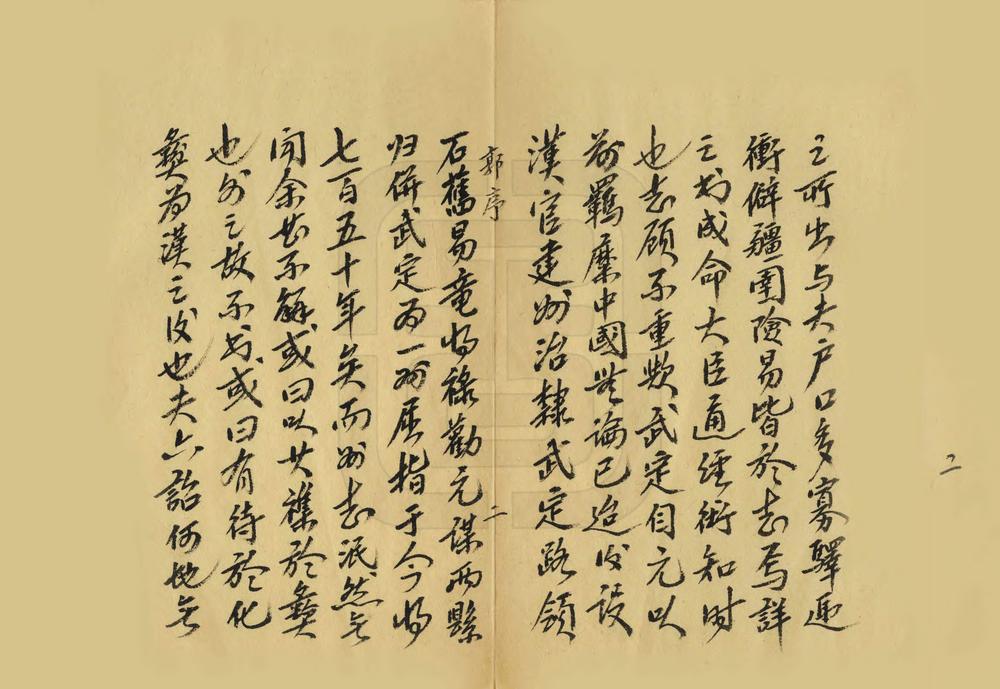 二
之所出与夫户口多寡驛逓
衝僻疆圉險易皆於志焉詳
之书成命大臣通經術知时
也志顾不重欤武定自元以
前羈縻中國無論已迨后设
漢官建州治隸武定路領
郭序 二
石舊易竜将禄勸元謀两縣
归併武定为一州屈指于今将
七百五十年矣而州志泯然无
闻余甚不解或曰以其襍於彝
也外之故不书或曰有待於化
彝为漢之后也夫六詔何地无